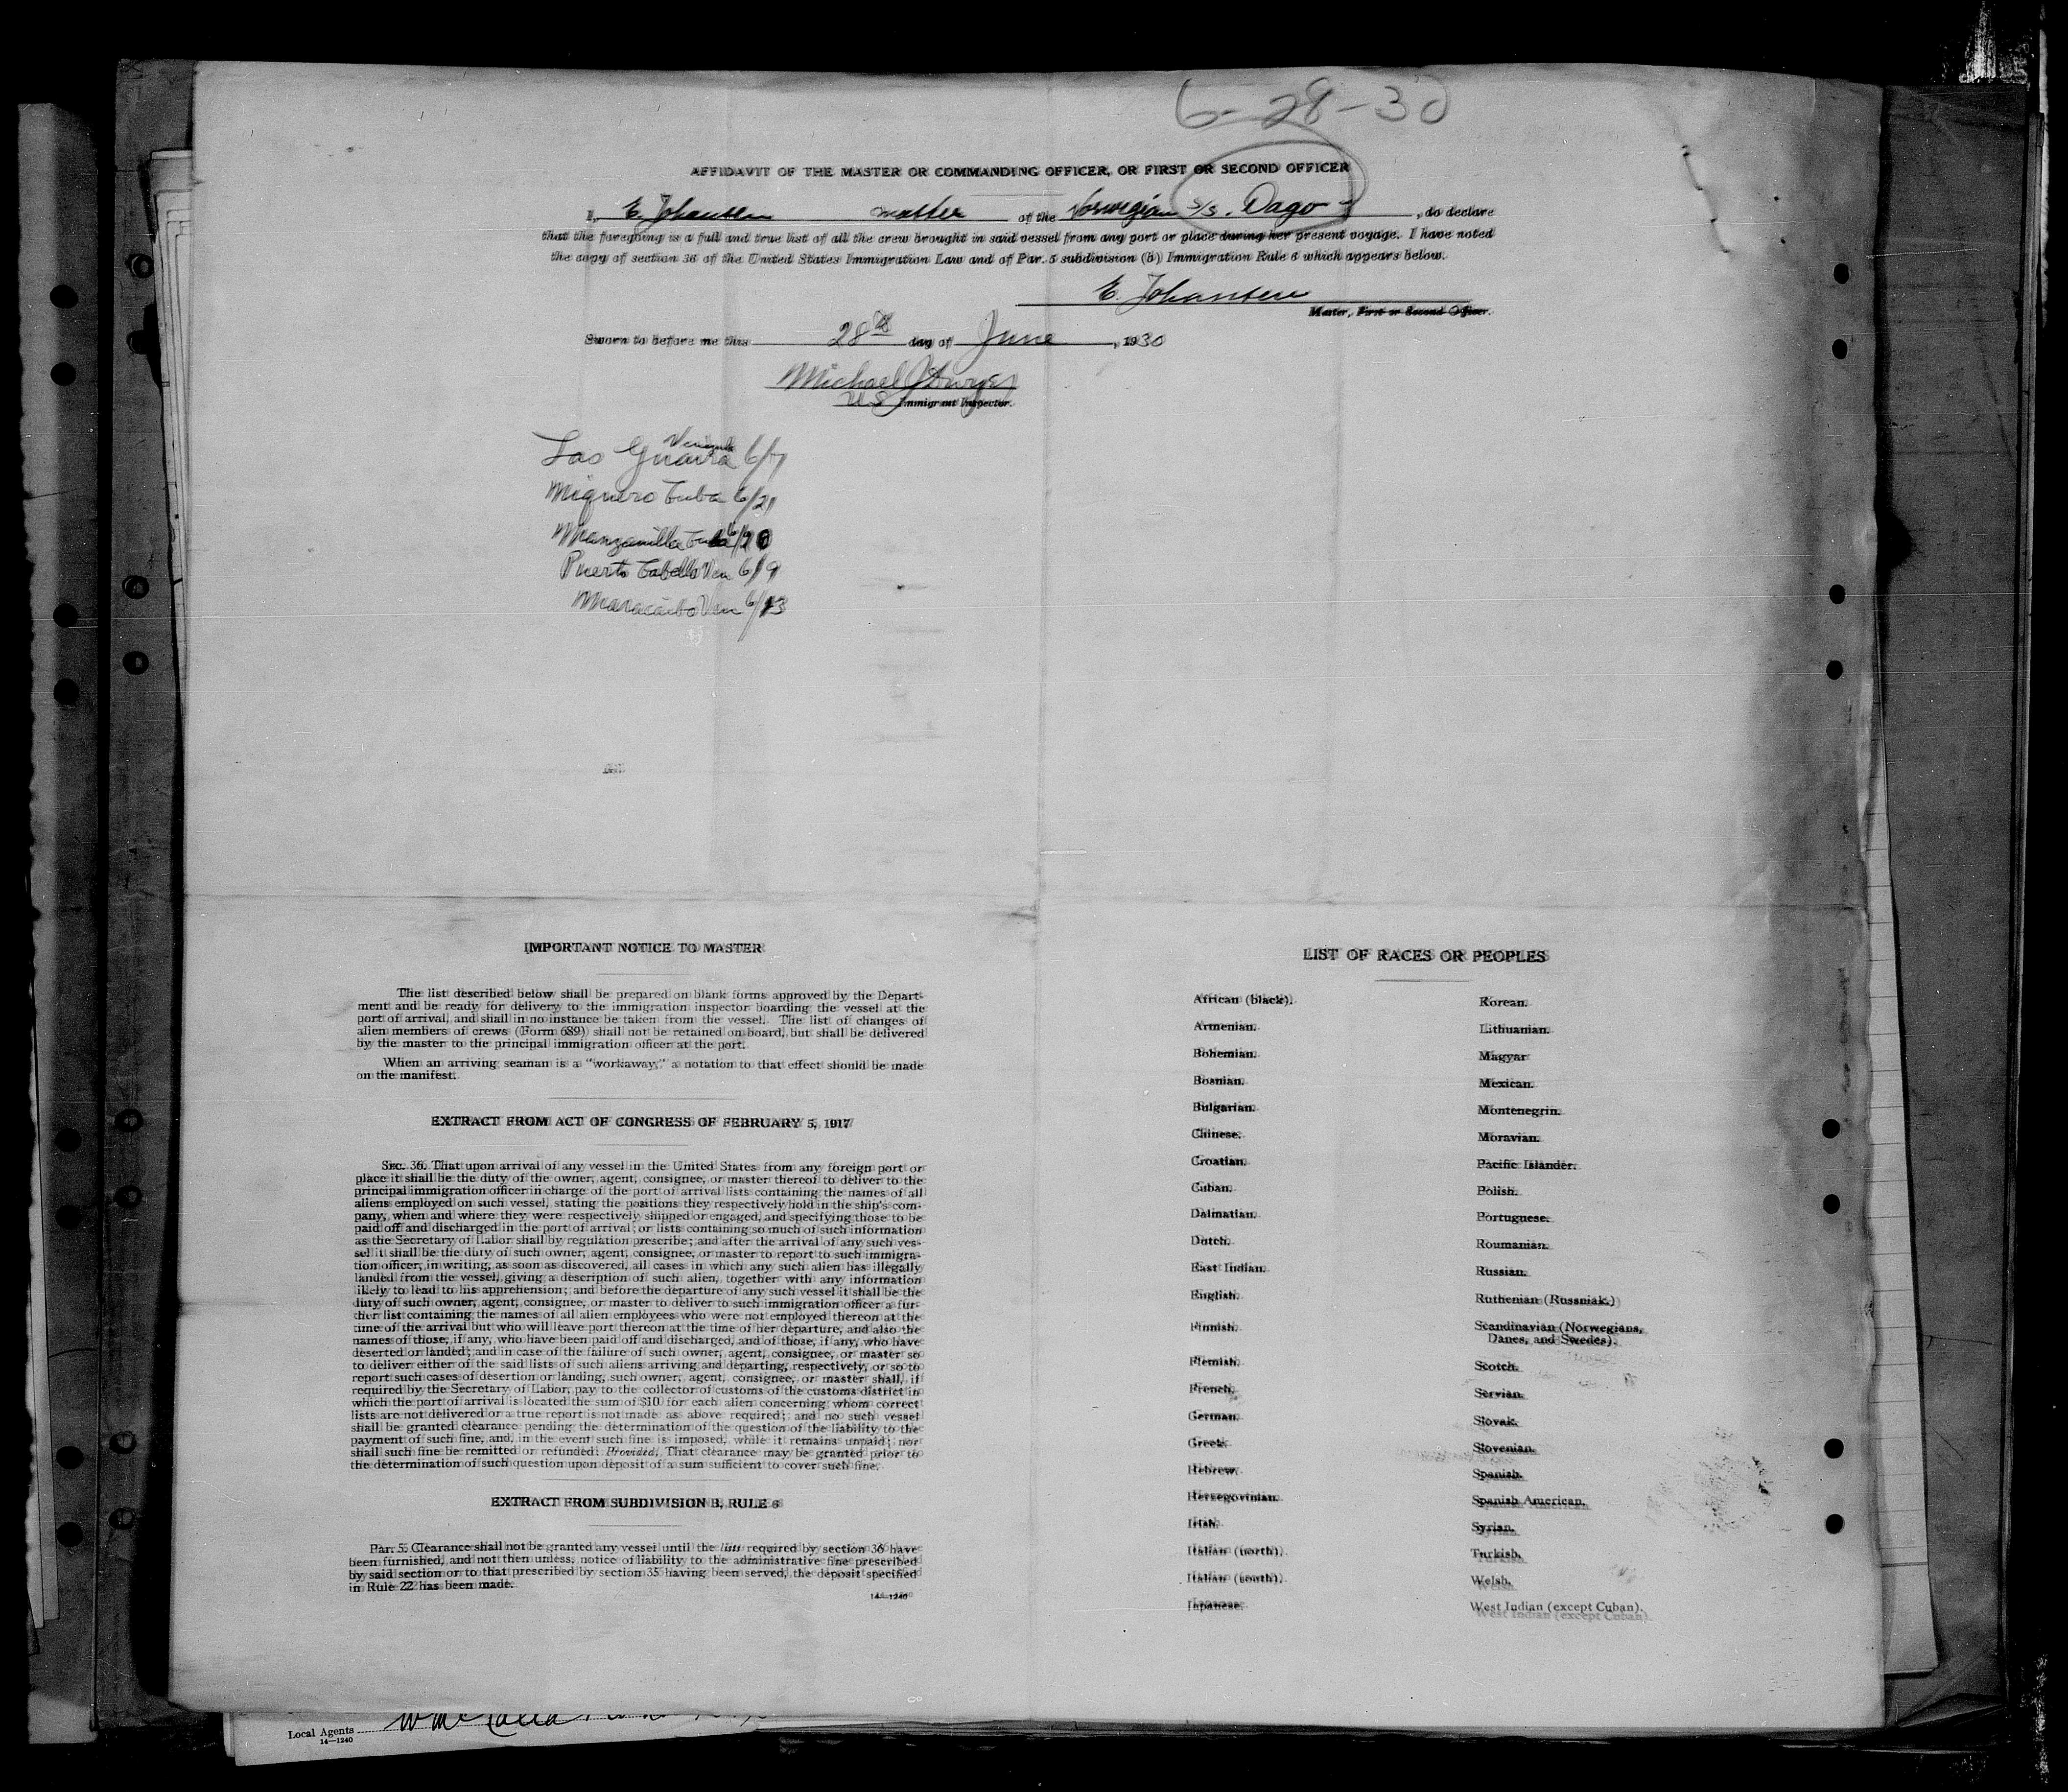 6-28-30
AFFIDAVIT OF THE MASTER OR COMMANDING OFFICER, OR FIRST OR SECOND OFFICER
I, E. Johansen master of the Norwegian S/S. Dago, do declare
that the foregoing is a full and true list of all the crew brought in said vessel from any port or place during her present voyage. I have noted
the copy of section 36 of the United States Immigration Law and of Par. 5 subdivision (b) Immigration Rule 6 which appears below.
E. Johansen
Master, First or Second Officer.
Sworn to before me this 28th day of June, 1930
Michael J Dwyer
US Immigrant Inspector.
Las Guaira 6/7
Miquero Cuba 6/21
Manzanilla Cuba 6/20
Puerto Cabello Ven 6/9
Maracaibo Ven 6/13
IMPORTANT NOTICE TO MASTER
The list described below shall be prepared on blank forms approved by the Depart-
ment and be ready for delivery to the immigration inspector boarding the vessel at the
port of arrival, and shall in no instance be taken from the vessel. The list of changes of
alien members of crews (Form 689) shall not be retained on board, but shall be delivered
by the master to the principal immigration officer at the port.
When an arriving seaman is a "workaway," a notation to that effect should be made
on the manifest.
EXTRACT FROM ACT OF CONGRESS OF FEBRUARY 5, 1917
Sec. 36. That upon arrival of any vessel in the United States from any foreign port or
place it shall be the duty of the owner, agent, consignee, or master thereof to deliver to the
principal immigration officer in charge of the port of arrival lists containing the names of all
aliens employed on such vessel, stating the positions they respectively hold in the ship's com-
pany, when and where they were respectively shipped or engaged, and specifying those to be
paid off and discharged in the port of arrival; or lists containing so much of such information
as the Secretary of Labor shall by regulation prescribe; and after the arrival of any such ves-
sel it shall be the duty of such owner, agent, consignee, or master to report to such immigra-
tion officer, in writing, as soon as discovered, all cases in which any such alien has illegally
landed from the vessel, giving a description of such alien, together with any information
likely to lead to his apprehension; and before the departure of any such vessel it shall be the
duty of such owner, agent, consignee, or master to deliver to such immigration officer a fur-
ther list containing the names of all alien employees who were not employed thereon at the
time of the arrival but who will leave port thereon at the time of her departure, and also the
names of those, if any, who have been paid off and discharged, and of those, if any, who have
deserted or landed; and in case of the failure of such owner, agent, consignee, or master so
to deliver either of the said lists of such aliens arriving and departing, respectively, or so to
report such cases of desertion or landing, such owner, agent, consignee, or master shall, if
required by the Secretary of Labor, pay to the collector of customs of the customs district in
which the port of arrival is located the sum of $10 for each alien concerning whom correct
lists are not delivered or a true report is not made as above required; and no such vessel
shall be granted clearance pending the determination of the question of the liability to the
payment of such fine, and, in the event such fine is imposed, while it remains unpaid; nor
shall such fine be remitted or refunded: Provided, That clearance may be granted prior to
the determination of such question upon deposit of a sum sufficient to cover such fine.
EXTRACT FROM SUBDIVISION B, RULE 6
Par. 5. Clearance shall not be granted any vessel until the lists required by section 36 have
been furnished, and not then unless, notice of liability to the administrative fine prescribed
by said section or to that prescribed by section 35 having been served, the deposit specified
in Rule 22 has been made.
14—1240
LIST OF RACES OR PEOPLES
African (black).
Armenian.
Bohemian.
Bosnian.
Bulgarian.
Chinese.
Croatian.
Cuban.
Dalmatian.
Dutch.
East Indian.
English.
Finnish.
Flemish.
French.
German.
Greek.
Hebrew.
Herzegovinian.
Irish.
Italian (north).
Italian (south).
Japanese.
Korean.
Lithuanian.
Magyar
Mexican.
Montenegrin.
Moravian.
Pacific Islander.
Polish.
Portuguese.
Roumanian.
Russian.
Ruthenian (Russniak.)
Scandinavian (Norwegians,
Danes, and Swedes).
Scotch.
Servian.
Slovak.
Slovenian.
Spanish.
Spanish American.
Syrian.
Turkish.
Welsh.
West Indian (except Cuban).
Local Agents
14—1240